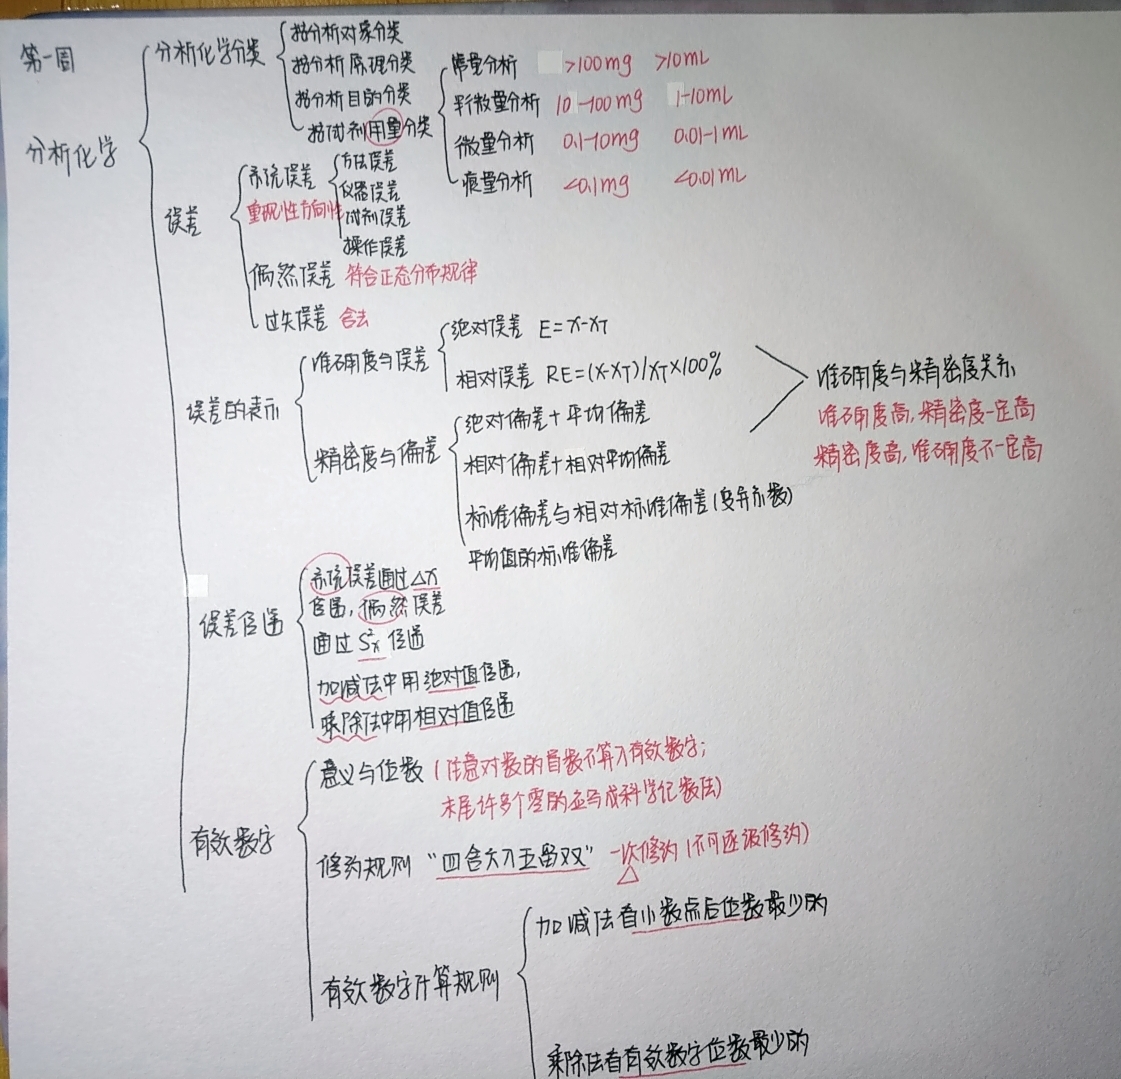 第一周
分析化学
分析化学分类
按分析对象分类
按分析原理分类
按分析目的分类
按试剂用量分类
常量分析 >100mg >10mL
半微量分析 10-100mg 1-10mL
微量分析 0.1-10mg 0.01-1mL
痕量分析 <0.1mg <0.01mL
误差
系统误差
重现性方向性
方法误差
仪器误差
试剂误差
操作误差
偶然误差 符合正态分布规律
过失误差 舍去
误差的表示
准确度与误差
绝对误差 E=x-xT
相对误差 RE=(x-xT)/xT×100%
精密度与偏差
绝对偏差+平均偏差
相对偏差+相对平均偏差
标准偏差与相对标准偏差(变异系数)
平均值的标准偏差
准确度与精密度关系
准确度高,精密度一定高
精密度高,准确度不一定高
误差传递
系统误差通过△x
传递,偶然误差
通过S²x传递
加减法中用绝对值传递,
乘除法中用相对值传递
有效数字
意义与位数(注意对数的首数不算入有效数字;
末尾许多个零的应写成科学记数法)
修约规则 “四舍六入五留双” 一次修约(不可逐级修约)
有效数字计算规则
加减法看小数点后位数最少的
乘除法看有效数字位数最少的